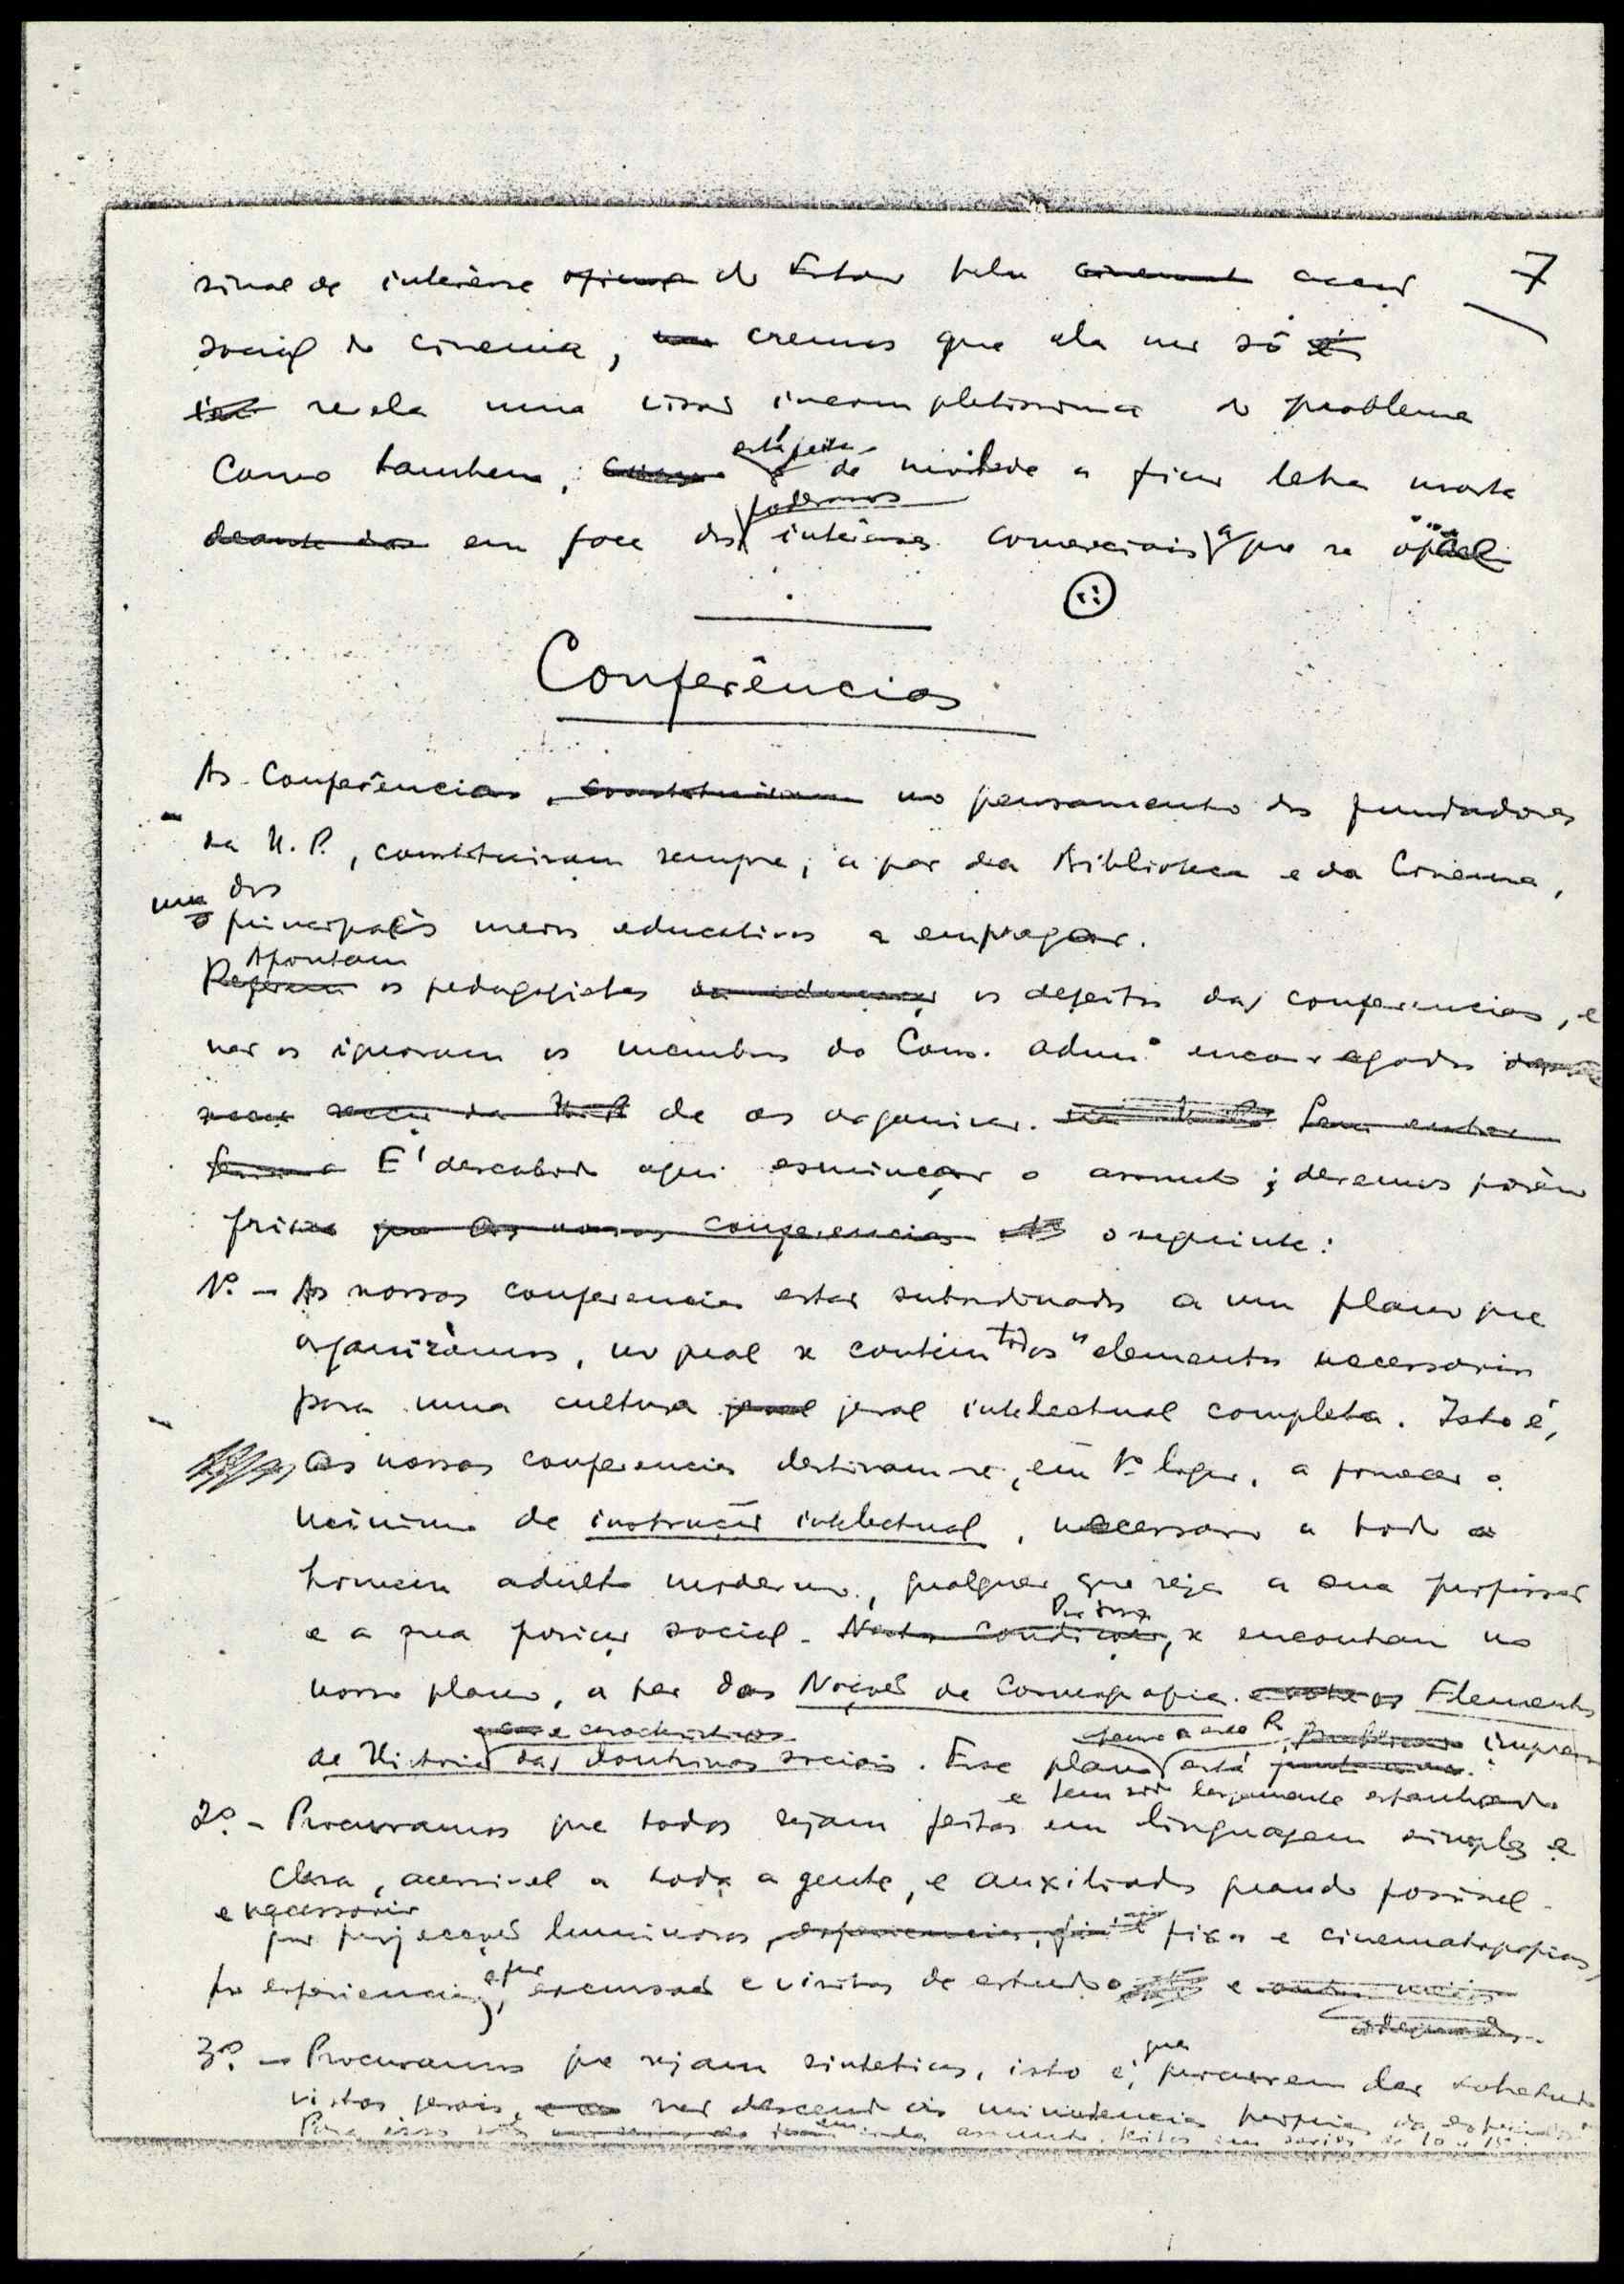 7
sinal de interêsse do Estado pela acção
social do cinema, cremos que ela não só
revela uma visão incompletissima do problema
como tambem, está sujeita de novidade a ficar letra morta
em face dos poderosos interêsses comerciais a que se opõe
Conferências
As Conferências, no pensamento dos fundadores
da U. P., constituiram sempre, a par da Biblioteca e do Cinema,
um dos
principais meios educativos a empregar.
Apontam os pedagogistas os defeitos das conferencias, e
não os ignoram os membros do Cons. admº encarregados
de as organizar.
É descabido aqui esmiuçar o assunto; devemos porêm
frisar o seguinte:
1º. - As nossas conferencias estão subordinadas a um plano que
organizámos, no qual se contêm todos os elementos necessarios
para uma cultura jeral intelectual completa. Isto é,
as nossas conferencias destinam-se, em 1º logar, a fornecer o
minimo de instrução intelectual, necessario a todo o
homem adulto moderno, qualquer que seja a sua profissão
e a sua posição social. Por isso, se encontram no
nosso plano, a par das Noções de Cosmografia os Elementos
de Historia das doutrinas sociais. Esse plano está impresso
e tem sido largamente espalhado
2º. - Procuramos que todas sejam feitas em linguagem simples e
clara, acessivel a toda a gente, e auxiliadas quando possivel
e necessario
por projecções luminosas, fixas e cinematograficas,
por experiencias, e por excursões e visitas de estudo e
3º. - Procuramos que sejam sinteticas, isto é, que procurem dar sobretudo
vistas jerais, não descendo ás minudencias proprias da especialid
Para isso são em cada assunto, feitas em series de 10 a 15